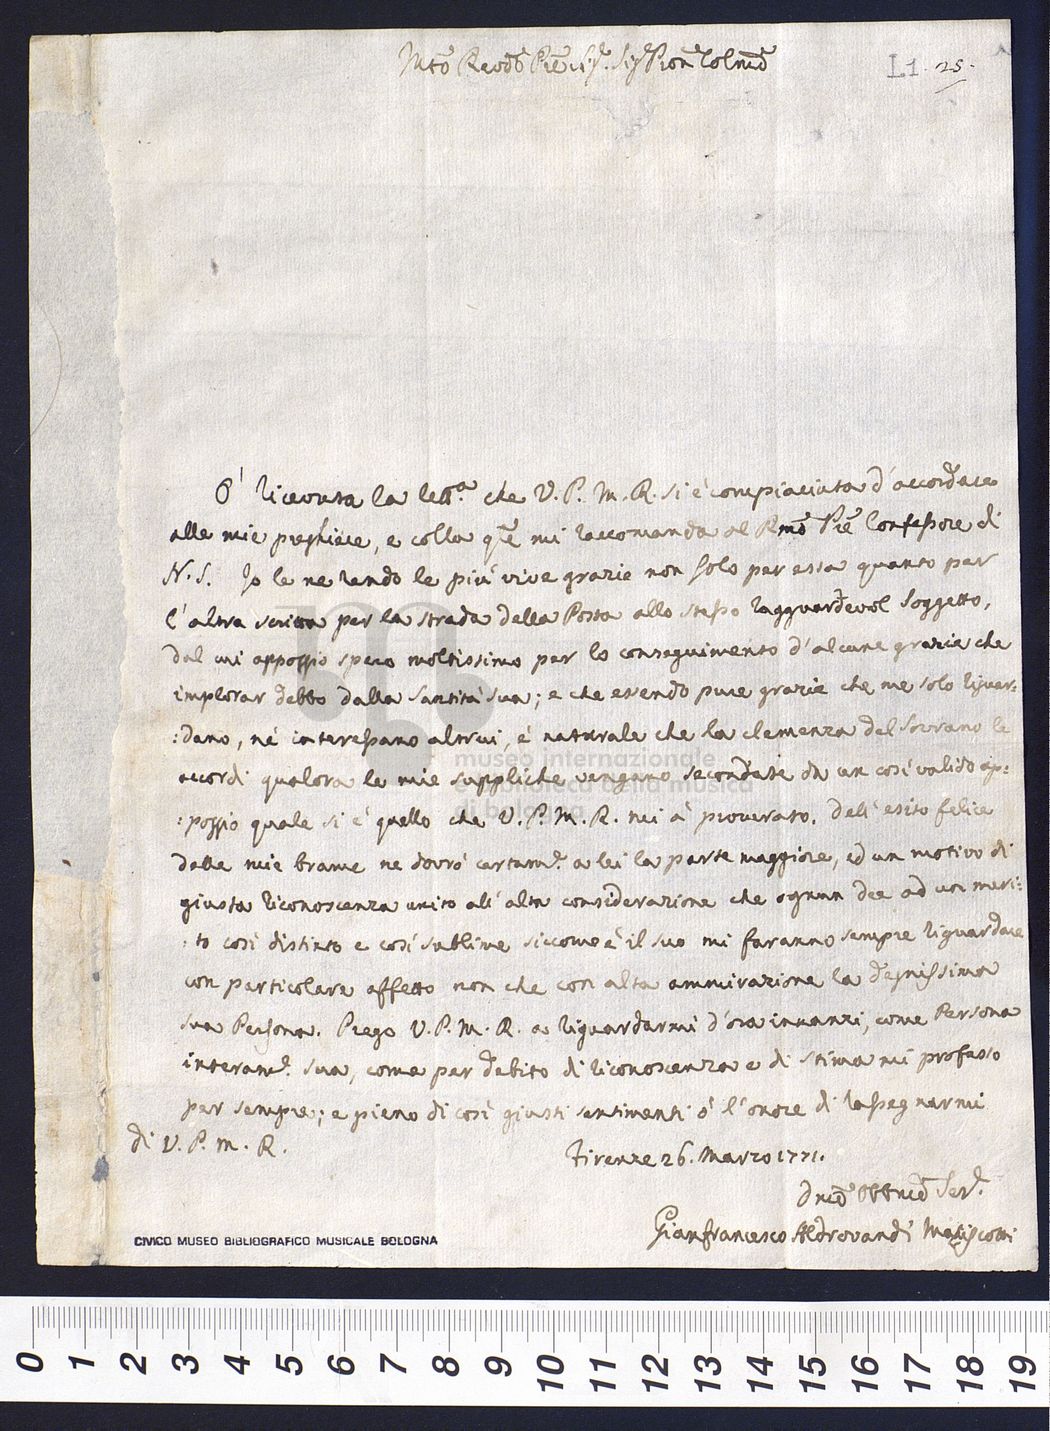 Mto Revdo Pre Sig. Sig. Pron Colmo
L1. 25.
Ò ricevuta la letta. che V. P. M. R. si è compiaciuta d'accordare
alle mie preghiere, e colla qle mi raccomanda al Rmo Pre Confessore di
N. S. Io le ne rendo le più vive grazie non solo per essa quanto per
l'altra scritta per la strada della Posta allo stesso ragguardevol Soggetto,
dal cui appoggio spero moltissimo per lo conseguimento d'alcune grazie che
implorar debbo dalla Santità Sua; e che essendo pure grazie che me solo riguar:
:dano, né interessano altrui, è naturale che la clemenza del Sovrano le
accordi qualora le mie suppliche vengano secondate da un così valido ap:
:poggio quale si è quello che V. P. M. R. mi à proccurato. Dell'esito felice
delle mie brame ne dovrò certam.e a lei la parte maggiore, ed un motivo di
giusta riconoscenza unito all'alta considerazione che ognun dee ad un meri:
:to così distinto e così sublime siccome è il suo mi faranno sempre riguardare
con particolare affetto non che con alta ammirazione la degnissima
sua Persona. Prego V. P. M. R. a riguardarmi d'ora innanzi, come Persona
interam.e sua, come per debito di riconoscenza e di stima mi professo
per sempre; e pieno di così giusti sentimenti ò l'onore di rassegnarmi
di V. P. M. R.
Firenze 26. Marzo 1771.
Dmo Obbmo Ser.e
Gianfrancesco Aldrovandi Marescotti
museo internazionale
e biblioteca della musica
di bologna
CIVICO MUSEO BIBLIOGRAFICO MUSICALE BOLOGNA
0 1 2 3 4 5 6 7 8 9 10 11 12 13 14 15 16 17 18 19